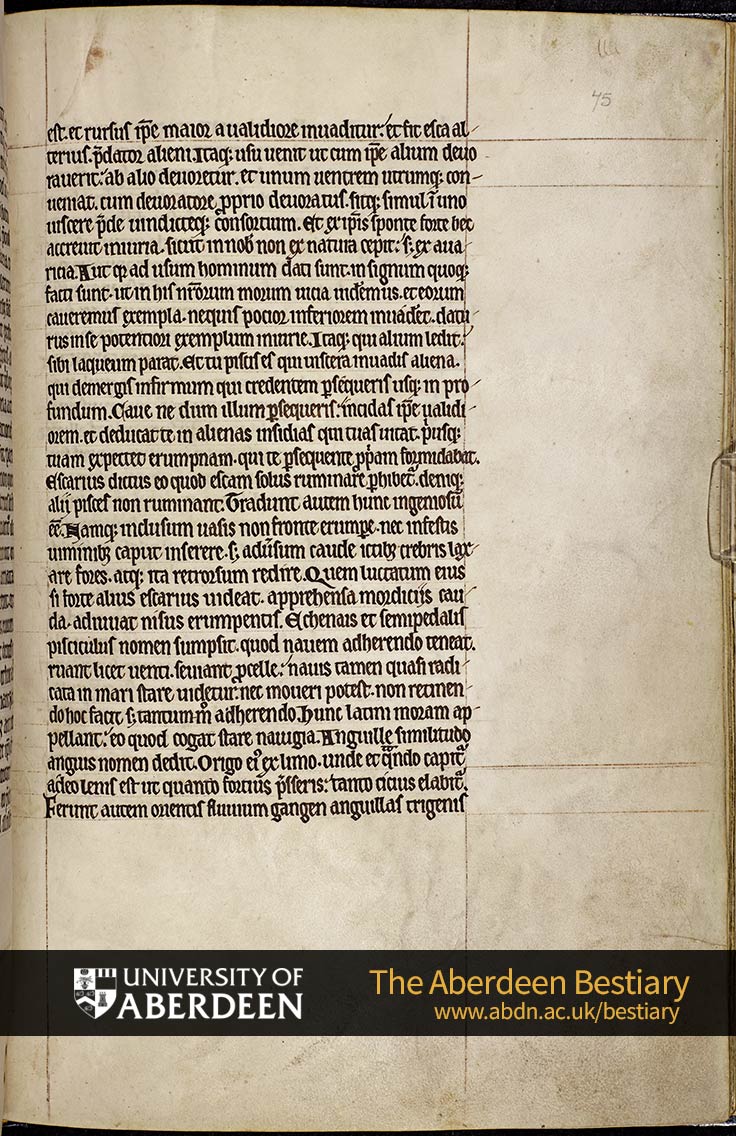 75
est. et rursus ip̅e maior a ualidiore inuaditur: et fit esca al-
terius p̅dator alieni. Itaq; usu uenit ut cum ip̅e alium deuo
rauerit: ab alio deuoretur. et unum uentrem utrumq; con-
ueniat. cum deuoratore p̱prio deuoratus. sitq; simul i̅ uno
uiscere p̅de uindicteq; consortium. Et ex ip̅is sponte forte hec
accreuit iniuria. sicut in nob̅ non ex natura cepit: s; ex aua
ricia. Aut q̅ ad usum hominum dati sunt. in signum quoq;
facti sunt. ut in his nr̅orum morum uicia uidem̅us. et eorum
caueremus exempla. nequis pocior inferiorem inuadet. datu-
rus in se potentiori exemplum iniurie. Itaq; qui alium ledit:
sibi laqueum parat. Et tu piscis es qui uiscera inuadis aliena.
qui demergis infirmum qui credentem p̱sequeris usq; in pro-
fundum. Caue ne dum illum p̱sequeris: incidas ip̅e ualidi-
orem. et deducat te in alienas insidias qui tuas uitat. p̅usq;
tuam expectet erumpnam. qui te p̱sequente p̱p̅am formidabat.
Escarius dictus eo quod escam solus ruminare p̱hibet̅. deniq;
alii pisces non ruminant. Tradunt autem hunc ingeniosu̅
e̅e. Namq; inclusum uasis non fronte erump̱e. nec infestis
uiminib; caput inserere. s; adu̅sum caude ictib; crebris lax-
are fores. atq; ita retrorsum redire. Quem luctatum eius
si forte alius escarius uideat. apprehensa mordiciis cau-
da. adiuuat nisus erumpentis. Echenais et semipedalis
pisciculus nomen sumpsit. quod nauem adherendo teneat.
ruant licet uenti. seuiant p̱celle: nauis tamen quasi radi
cata in mari stare uidetur. nec moueri potest. non retinen-
do hoc facit s; tantum m̊ adherendo. Hunc latini moram ap-
pellant: eo quod cogat stare nauigia. Anguille similitudo
anguis nomen dedit. Origo ei᷒ ex limo. unde et q̅ndo capit̅
adeo lenis est ut quanto fortius p̅sseris: tanto cicius elabit̅.
Ferunt autem orientis fluuium gangen anguillas trigenis
UNIVERSITY OF
ABERDEEN
The Aberdeen Bestiary
www.abdn.ac.uk/bestiary